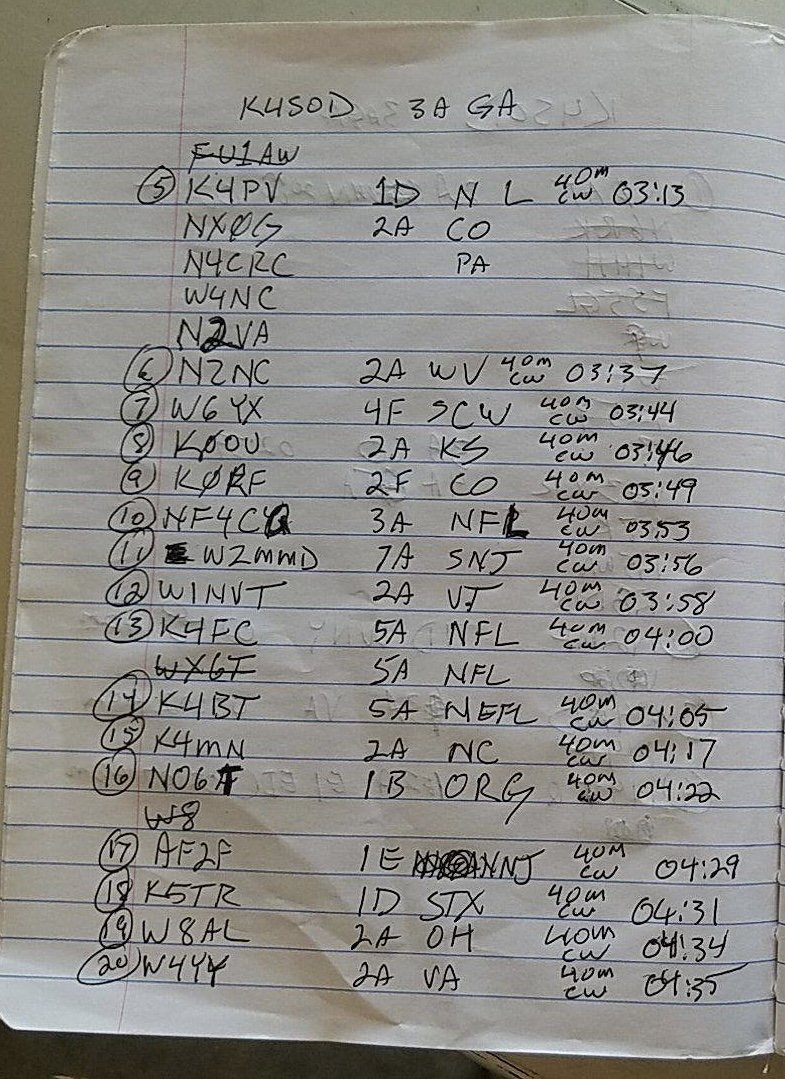 K4SOD 3A GA
FU1AW
5 K4PV 1D NL 40m cw 03:13
NXØG 2A CO
N4CRC PA
W4NC
N2VA
6 N2NC 2A WV 40m cw 03:37
7 W6YX 4F SCW 40m cw 03:44
8 KØOU 2A KS 40m cw 03:46
9 KØRF 2F CO 40m cw 03:49
10 NF4CQ 3A NFL 40m cw 03:53
11 W2mmD 7A SNJ 40m cw 03:56
12 W1NVT 2A VT 40m cw 03:58
13 K4FC 5A NFL 40m cw 04:00
WX6T 5A NFL
14 K4BT 5A NEFL 40m cw 04:05
15 K4mN 2A NC 40m cw 04:17
16 NO6T 1B ORG 40m cw 04:22
W8
17 AF2F 1E NNJ 40M cw 04:29
18 K5TR 1D STX 40m cw 04:31
19 W8AL 2A OH 40m cw 04:34
20 W4YY 2A VA 40m cw 04:35